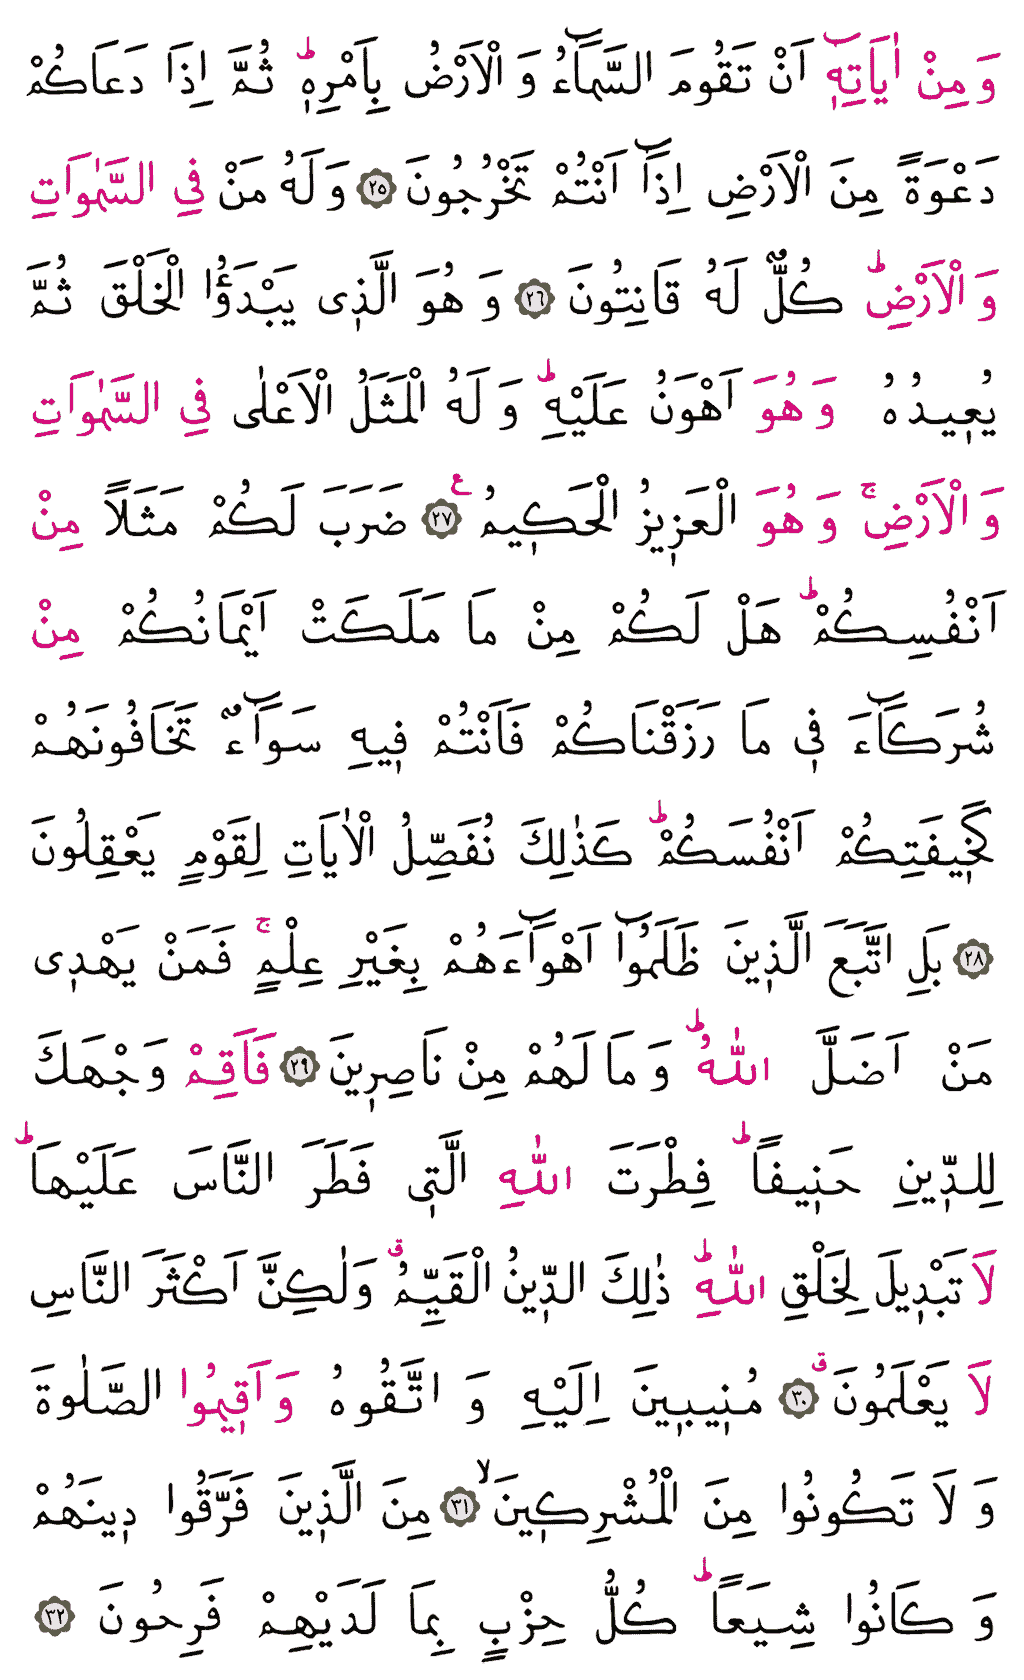 وَ مِنْ اٰيَاتِهٖۤ اَنْ تَقُومَ السَّمَآءُ وَ الْاَرْضُ بِاَمْرِهٖ ؕ ثُمَّ اِذَا دَعَاكُمْ
دَعْوَةً مِنَ الْاَرْضِ اِذَاۤ اَنْتُمْ تَخْرُجُونَ ﴿۲۵﴾ وَ لَهُ مَنْ فِي السَّمٰوَاتِ
وَ الْاَرْضِ ؕ كُلٌّ لَهُ قَانِتُونَ ﴿۲۶﴾ وَ هُوَ الَّذٖى يَبْدَؤُا الْخَلْقَ ثُمَّ
يُعٖيدُهُ وَ هُوَ اَهْوَنُ عَلَيْهِ ؕ وَ لَهُ الْمَثَلُ الْاَعْلٰى فِي السَّمٰوَاتِ
وَ الْاَرْضِ ۚ وَ هُوَ الْعَزٖيزُ الْحَكٖيمُ ﴿۲۷﴾ ع ضَرَبَ لَكُمْ مَثَلًا مِنْ
اَنْفُسِكُمْ ؕ هَلْ لَكُمْ مِنْ مَا مَلَكَتْ اَيْمَانُكُمْ مِنْ
شُرَكَآءَ فٖي مَا رَزَقْنَاكُمْ فَاَنْتُمْ فٖيهِ سَوَآءٌ تَخَافُونَهُمْ
كَخٖيفَتِكُمْ اَنْفُسَكُمْ ؕ كَذٰلِكَ نُفَصِّلُ الْاٰيَاتِ لِقَوْمٍ يَعْقِلُونَ
﴿۲۸﴾ بَلِ اتَّبَعَ الَّذٖينَ ظَلَمُوۤا اَهْوَآءَهُمْ بِغَيْرِ عِلْمٍ ۚ فَمَنْ يَهْدٖى
مَنْ اَضَلَّ اللّٰهُ ؕ وَ مَا لَهُمْ مِنْ نَاصِرٖينَ ﴿۲۹﴾ فَاَقِمْ وَجْهَكَ
لِلدّٖينِ حَنٖيفًا ؕ فِطْرَتَ اللّٰهِ الَّتٖى فَطَرَ النَّاسَ عَلَيْهَا ؕ
لَا تَبْدٖيلَ لِخَلْقِ اللّٰهِ ؕ ذٰلِكَ الدّٖينُ الْقَيِّمُ ۗ وَلٰكِنَّ اَكْثَرَ النَّاسِ
لَا يَعْلَمُونَ ۗ ﴿۳۰﴾ مُنٖيبٖينَ اِلَيْهِ وَ اتَّقُوهُ وَ اَقٖيمُوا الصَّلٰوةَ
وَ لَا تَكُونُوا مِنَ الْمُشْرِكٖينَ ۙ ﴿۳۱﴾ مِنَ الَّذٖينَ فَرَّقُوا دٖينَهُمْ
وَ كَانُوا شِيَعًا ؕ كُلُّ حِزْبٍ بِمَا لَدَيْهِمْ فَرِحُونَ ﴿۳۲﴾